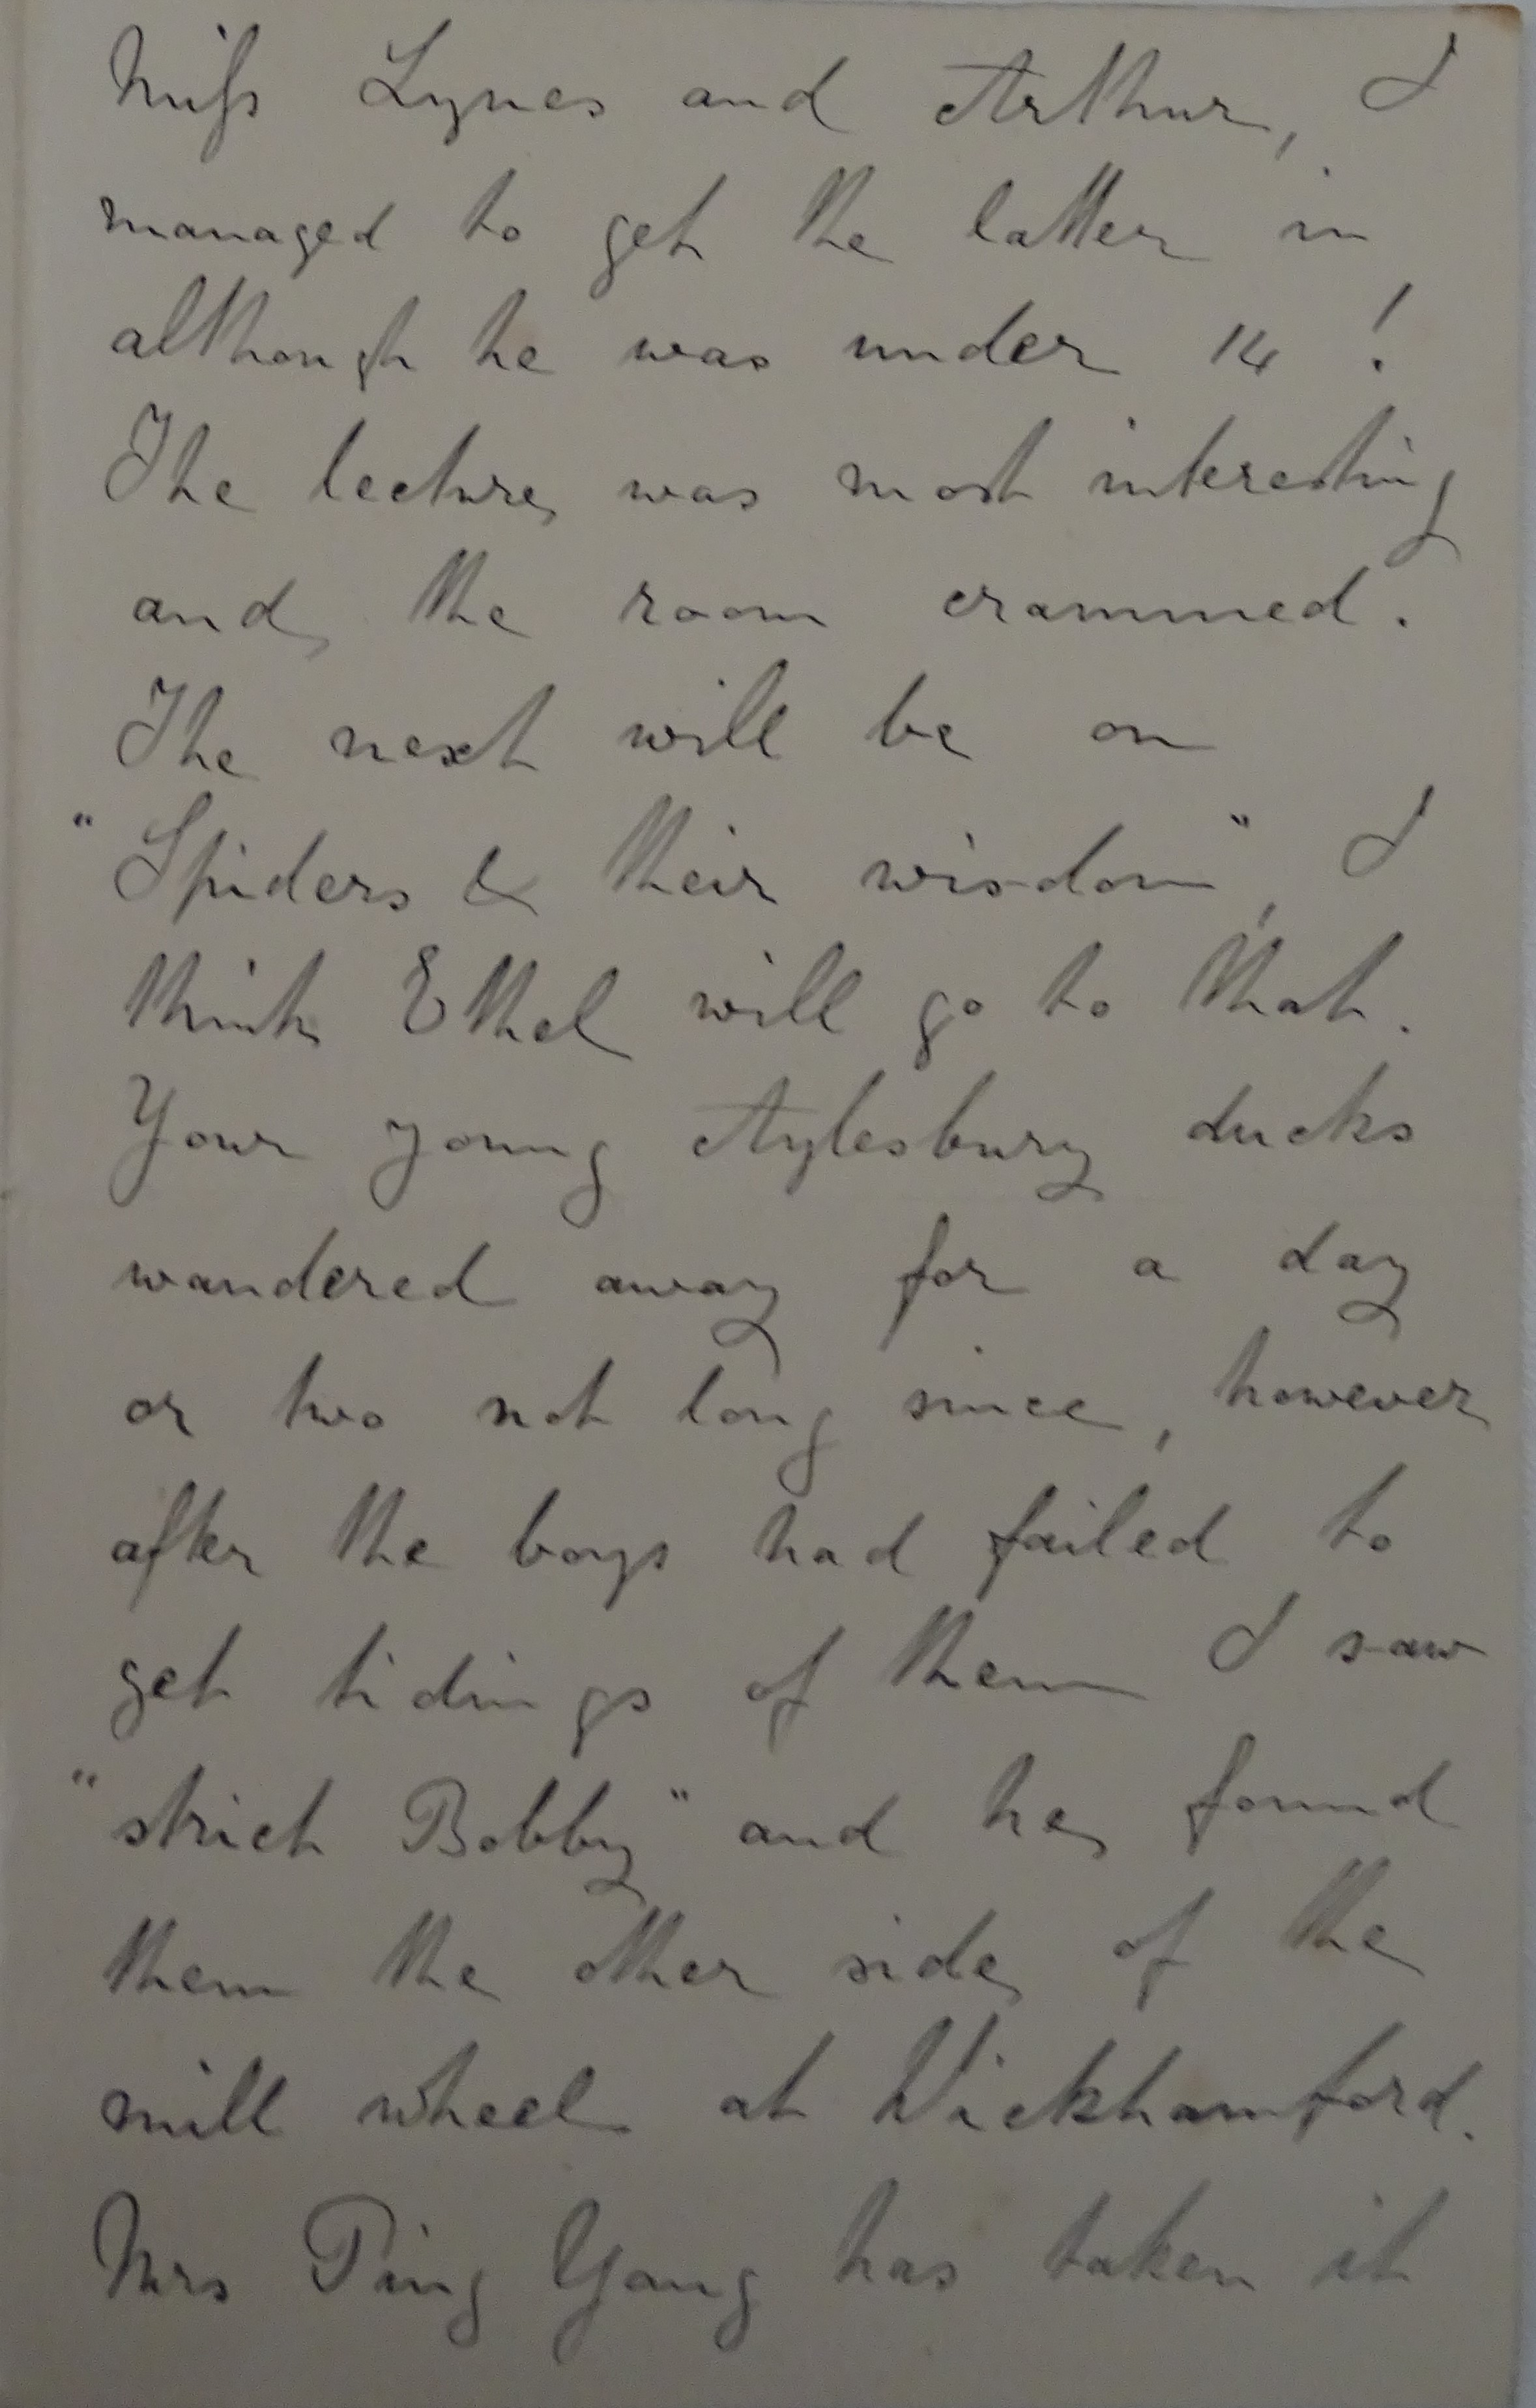 Miss Lynes and Arthur, I
managed to get the latter in
although he was under 14 !
The lecture was most interesting
and the room crammed.
The next will be on
"Spiders & their wisdom", I
think Ethel will go to that.
Your young Aylesbury ducks
wandered away for a day
or two not long since, however
after the boys had failed to
get tidings of them I saw
"strict Bobby" and he found
them the other side of the
mill wheel at Wickhamford.
Mrs Ping Yang has taken it